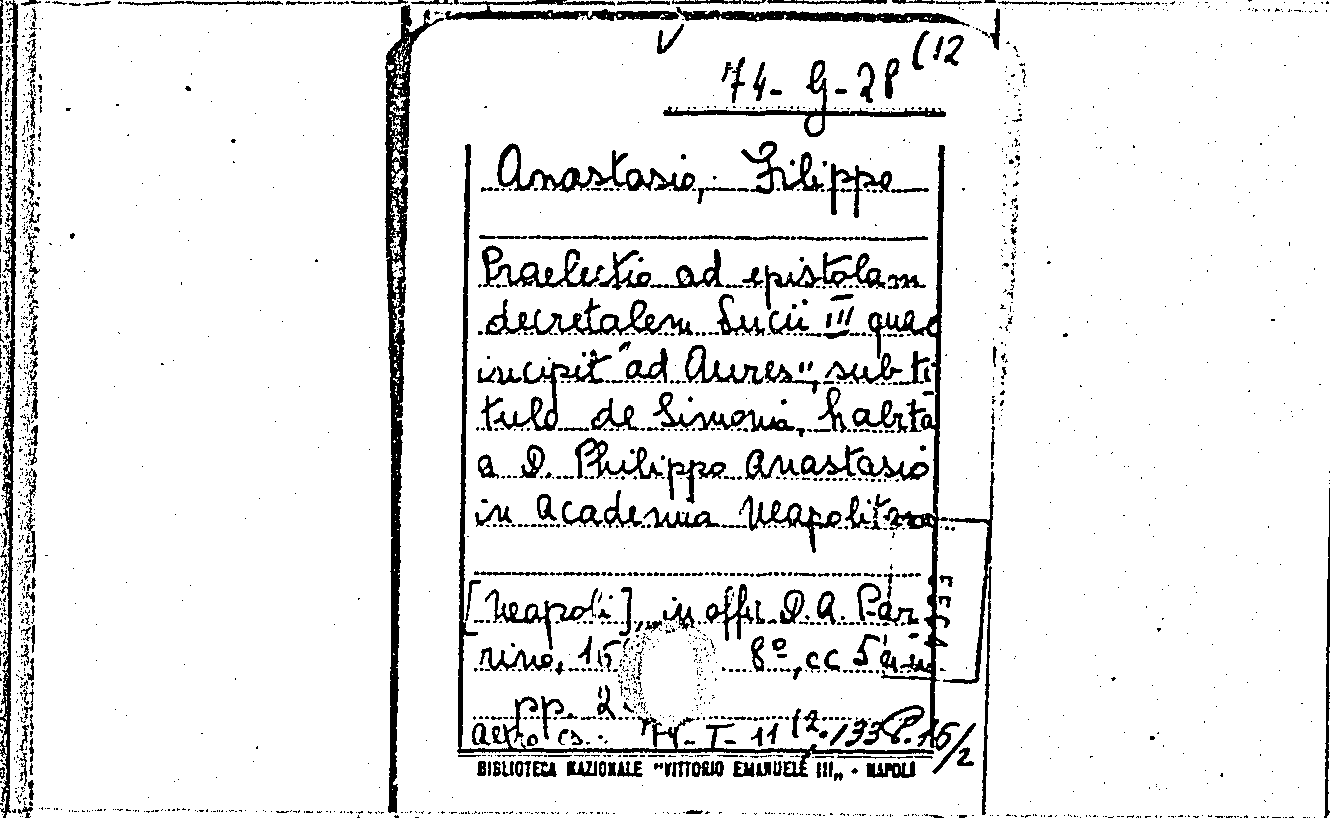 74-G-28 (12
Anastasio, Filippo
Praelectio ad epistolam
decretalem Lucii III quae
incipit "ad Aures", sub ti
tulo de Simonia, habita
a D. Philippo Anastasio
in Academia Neapolitana
[Neapoli], in offic. D. A. Par
rino, 8º, cc
pp. 2
Altro es.: 74-I-11 (2. 133 P. 15/2
BIBLIOTECA NAZIONALE "VITTORIO EMANUELE III" - NAPOLI